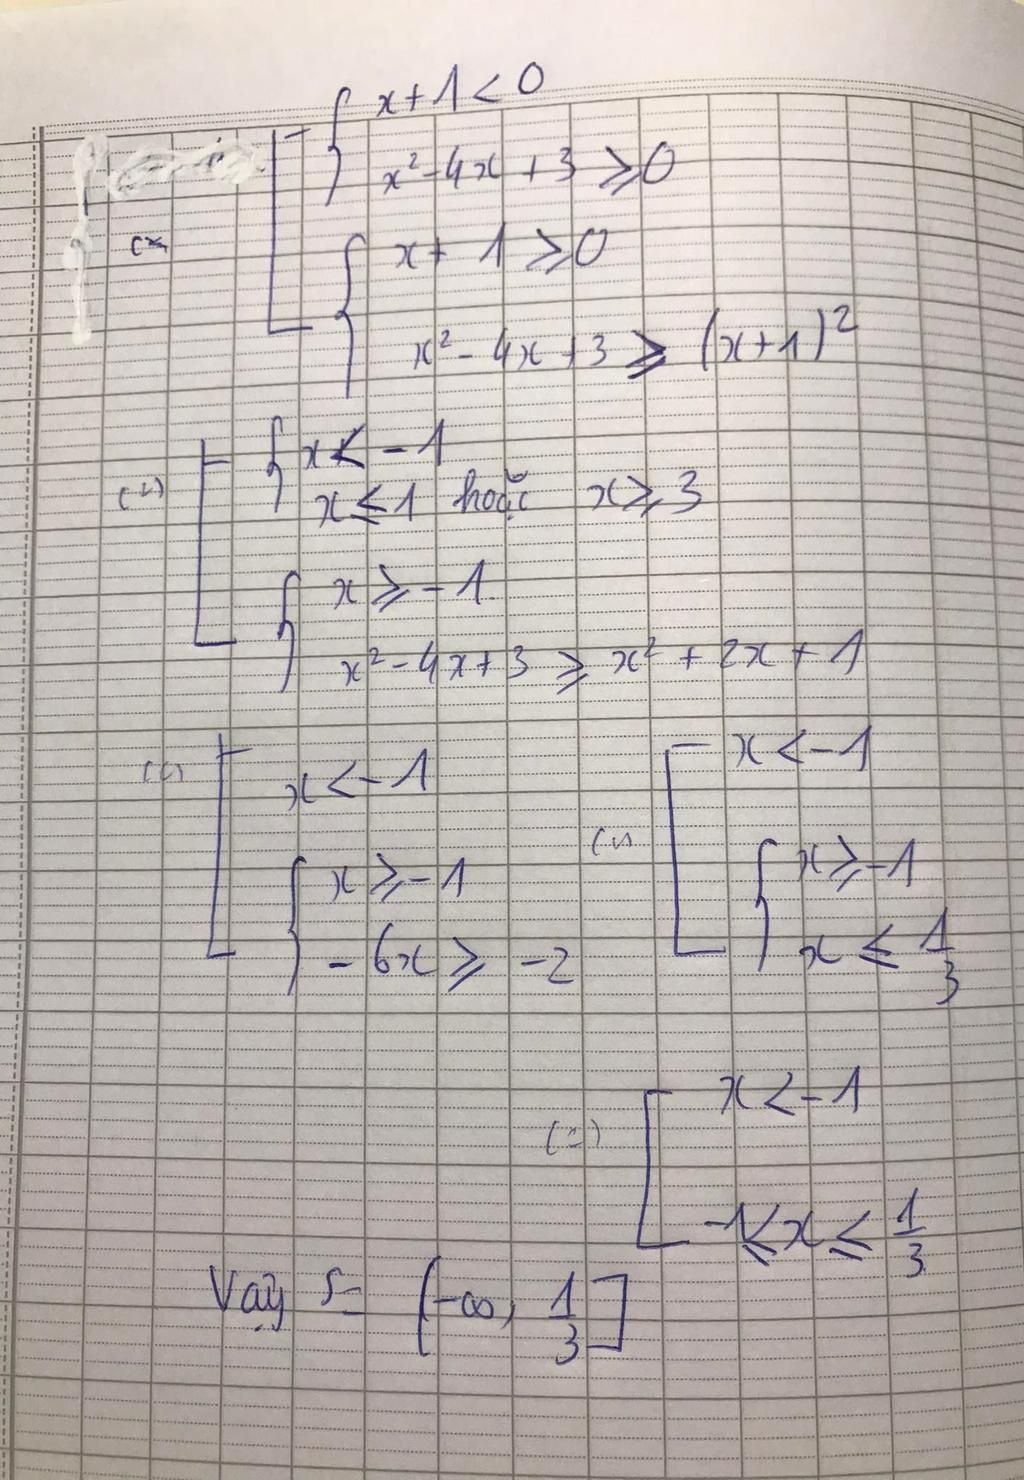 x + 1 < 0
x² - 4x + 3 ⩾ 0
x + 1 ⩾ 0
x² - 4x + 3 ⩾ (x + 1)²
x < - 1
x ≤ 1 hoặc x ⩾ 3
x ⩾ - 1
x² - 4x + 3 ⩾ x² + 2x + 1
x < - 1
x ⩾ - 1
- 6x ⩾ - 2
x < - 1
x ⩾ - 1
x ≤ 1/3
(=)
x < - 1
- 1 ≤ x ≤ 1/3
Vậy S = (-∞, 1/3]